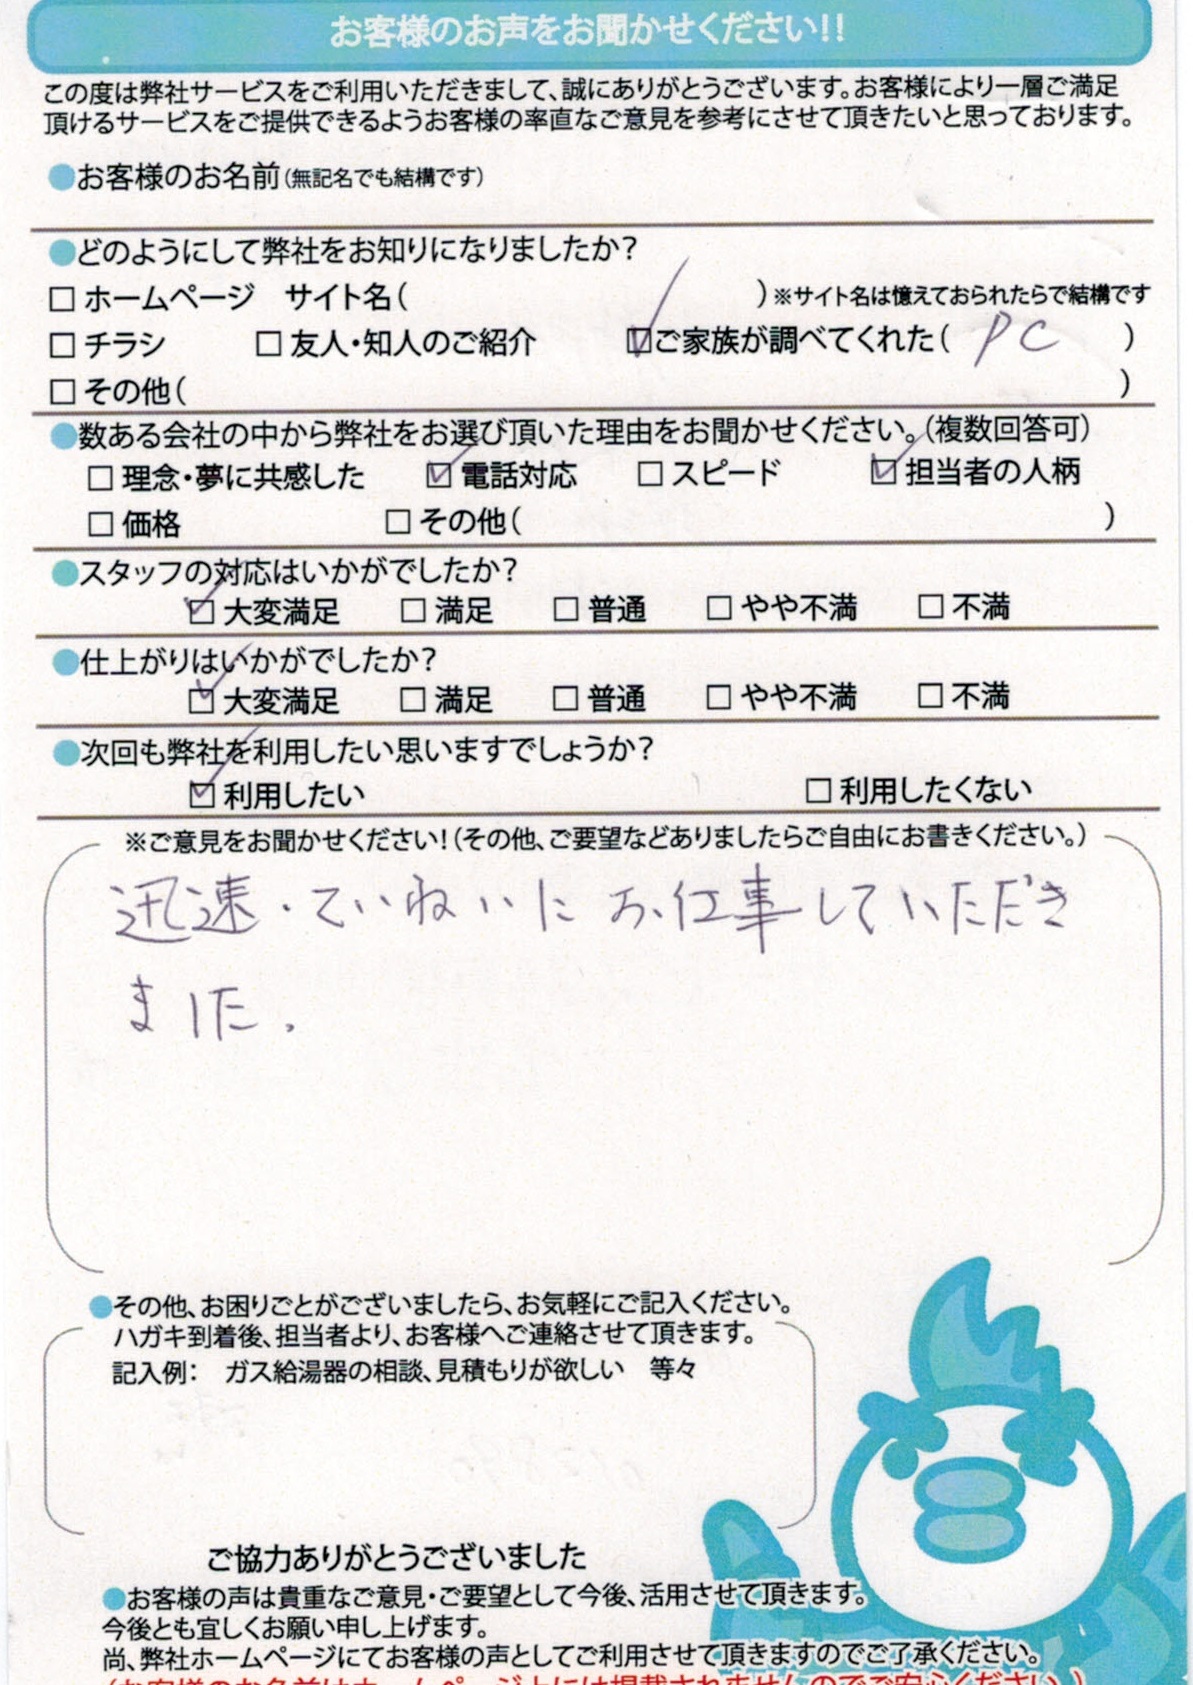 お客様のお声をお聞かせください!!
この度は弊社サービスをご利用いただきまして、誠にありがとうございます。お客様により一層ご満足
頂けるサービスをご提供できるようお客様の率直なご意見を参考にさせて頂きたいと思っております。
●お客様のお名前(無記名でも結構です)
●どのようにして弊社をお知りになりましたか?
□ ホームページ サイト名( )※サイト名は憶えておられたらで結構です
□ チラシ □ 友人・知人のご紹介 ☑ご家族が調べてくれた( PC )
□ その他( )
●数ある会社の中から弊社をお選び頂いた理由をお聞かせください。(複数回答可)
□ 理念・夢に共感した ☑ 電話対応 □ スピード ☑ 担当者の人柄
□ 価格 □ その他( )
●スタッフの対応はいかがでしたか?
☑ 大変満足 □ 満足 □ 普通 □ やや不満 □ 不満
●仕上がりはいかがでしたか?
☑ 大変満足 □ 満足 □ 普通 □ やや不満 □ 不満
●次回も弊社を利用したい思いますでしょうか?
☑ 利用したい □ 利用したくない
※ご意見をお聞かせください!(その他、ご要望などありましたらご自由にお書きください。)
迅速・ていねいにお仕事していただき
ました。
●その他、お困りごとがございましたら、お気軽にご記入ください。
ハガキ到着後、担当者より、お客様へご連絡させて頂きます。
記入例: ガス給湯器の相談、見積もりが欲しい 等々
ご協力ありがとうございました
●お客様の声は貴重なご意見・ご要望として今後、活用させて頂きます。
今後とも宜しくお願い申し上げます。
尚、弊社ホームページにてお客様の声としてご利用させて頂きますのでご了承ください。
(お客様のお名前はホームページ上には掲載されませんのでご安心ください。)